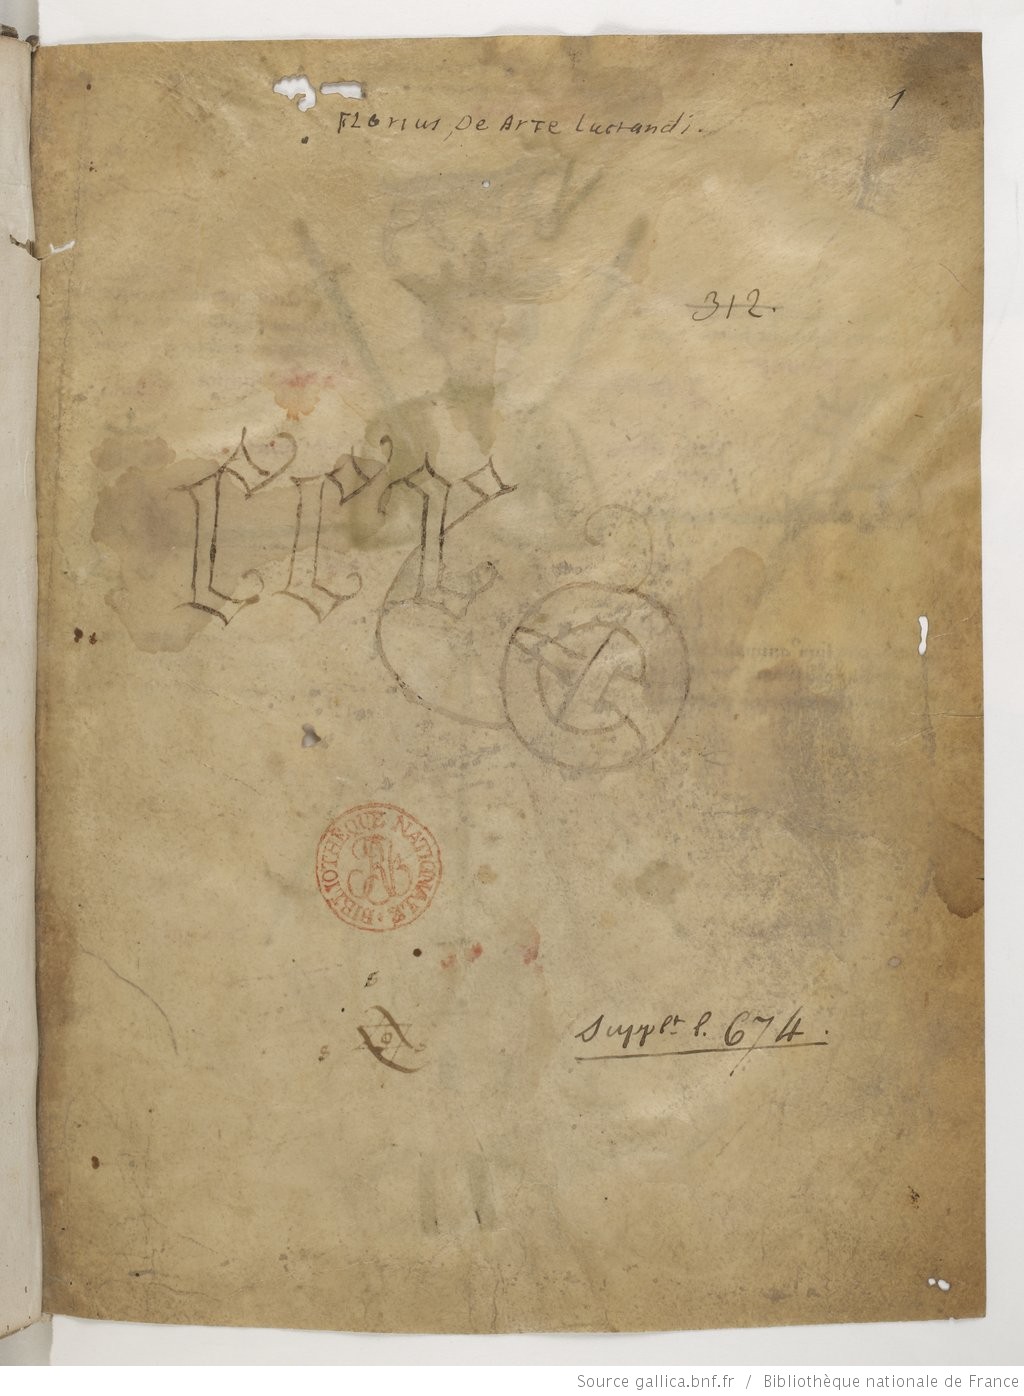 1
FLOrius, De Arte Luctandi.
312.
BIBLIOTHÈQUE NATIONALE
Supplt l. 674.
Source gallica.bnf.fr / Bibliothèque nationale de France